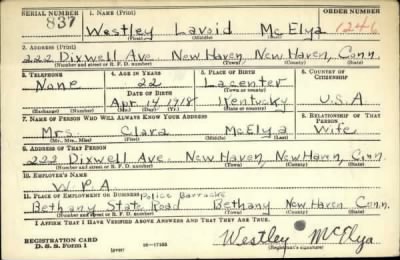 SERIAL NUMBER
1. NAME (Print)
ORDER NUMBER
837
Westley Lavoid McElya
1246
(First) (Middle) (Last)
2. ADDRESS (Print)
222 Dixwell Ave. New Haven, New Haven, Conn.
(Number and street or R. F. D. number) (Town) (County) (State)
3. TELEPHONE
4. AGE IN YEARS
5. PLACE OF BIRTH
6. COUNTRY OF CITIZENSHIP
None
22
Lacenter
DATE OF BIRTH
(Town or county)
Apr. 14 1918
Kentucky
U.S.A
(Exchange) (Number)
(Mo.) (Day) (Yr.)
(State or country)
7. NAME OF PERSON WHO WILL ALWAYS KNOW YOUR ADDRESS
8. RELATIONSHIP OF THAT PERSON
Mrs. Clara McElya
Wife
(Mr., Mrs., Miss) (First) (Middle) (Last)
9. ADDRESS OF THAT PERSON
222 Dixwell Ave. New Haven, New Haven, Conn.
(Number and street or R. F. D. number) (Town) (County) (State)
10. EMPLOYER'S NAME
W. P. A.
11. PLACE OF EMPLOYMENT OR BUSINESS
Police Barracks
Bethany State Road Bethany New Haven Conn.
(Number and street or R. F. D. number) (Town) (County) (State)
I AFFIRM THAT I HAVE VERIFIED ABOVE ANSWERS AND THAT THEY ARE TRUE.
REGISTRATION CARD
D. S. S. Form 1
(over)
Westley McElya
(Registrant's signature)